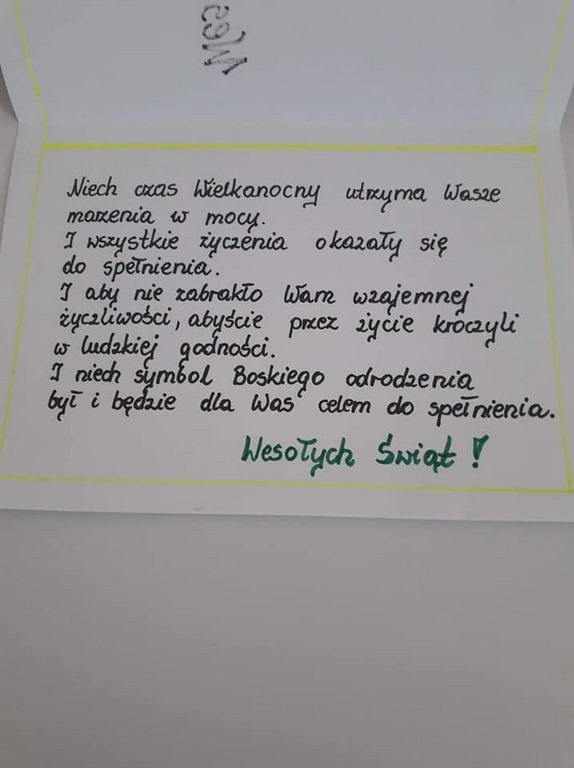 Wes
Niech czas Wielkanocny utrzyma Wasze
marzenia w mocy.
I wszystkie życzenia okazały się
do spełnienia.
I aby nie zabrakło Wam wzajemnej
życzliwości, abyście przez życie kroczyli
w ludzkiej godności.
I niech symbol Boskiego odrodzenia
był i będzie dla Was celem do spełnienia.
Wesołych Świąt!